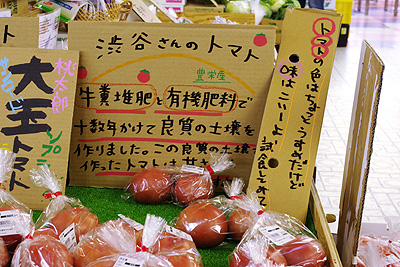 渋谷さんのトマト
豊栄産
牛糞堆肥と有機肥料で
十数年かけて良質の土壌を
作りました。この良質の土壌で
作ったトマトは甘さ
トマトの色はちょっとうすめだけど
味はこいーよ 試食してみて
桃太郎
大玉
トマト